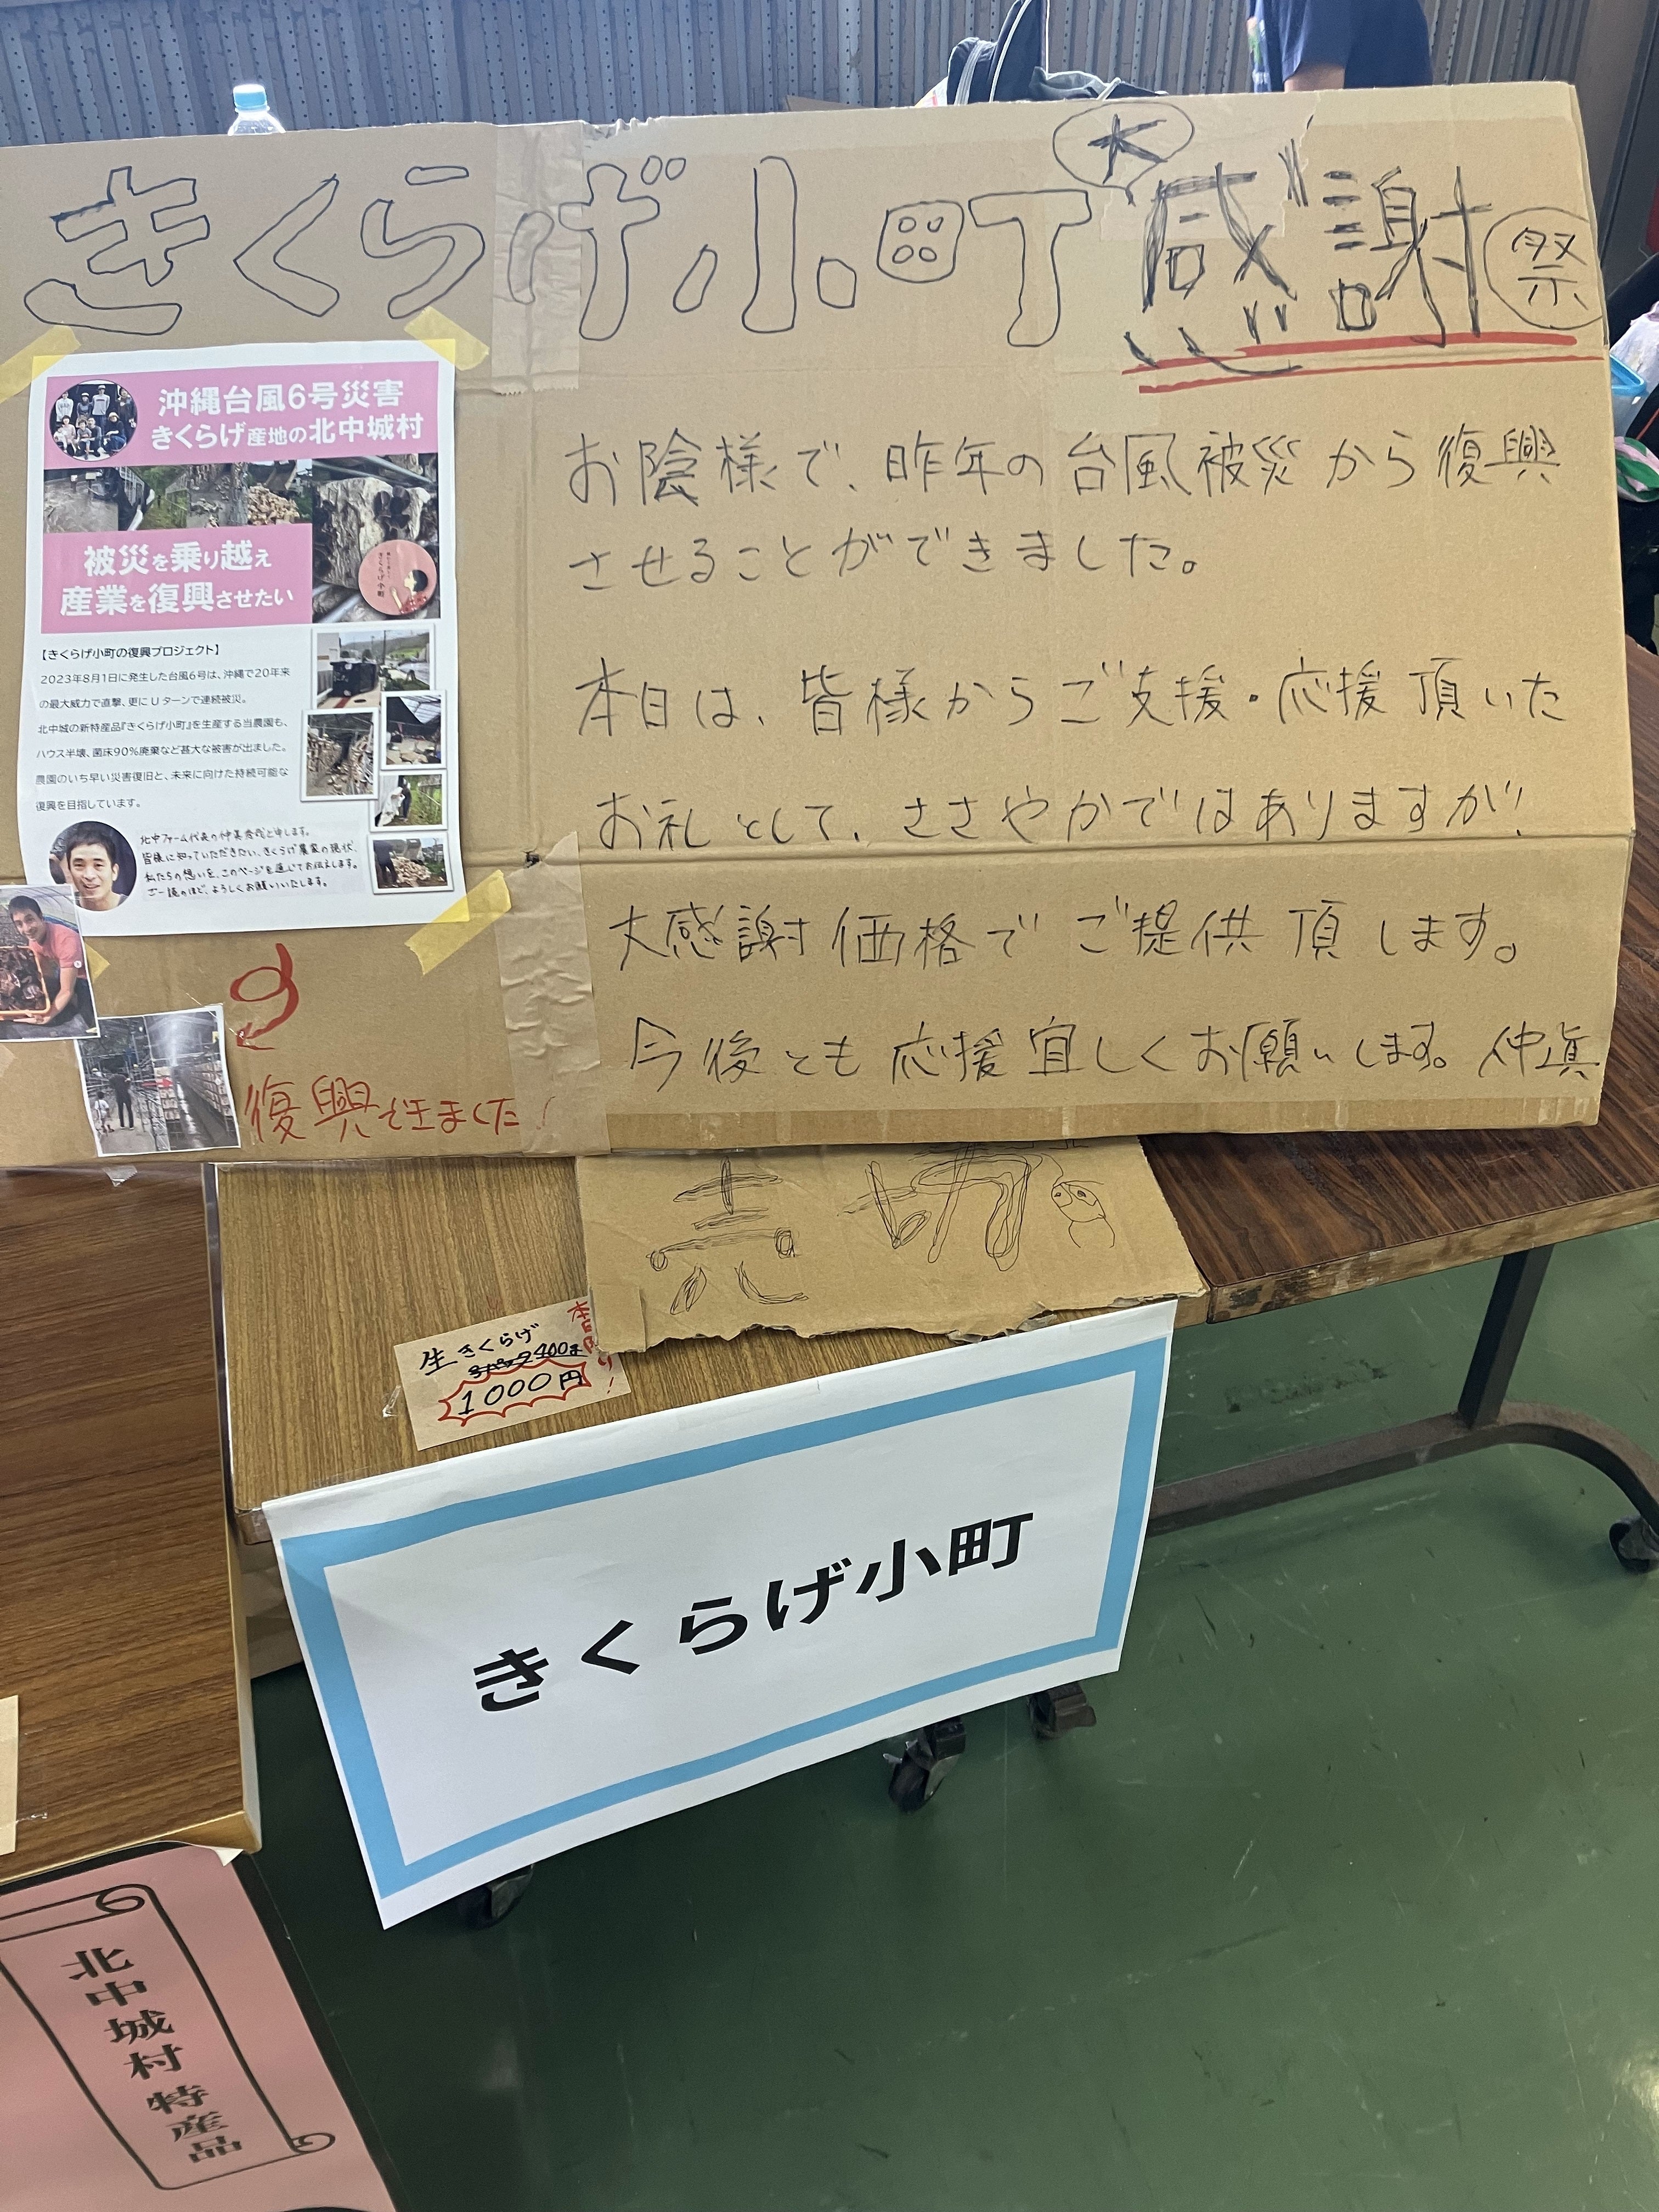 きくらげ小町大感謝祭
お陰様で、昨年の台風被災から復興
させることができました。
本日は、皆様からご支援・応援頂いた
お礼として、ささやかではありますが!
大感謝価格でご提供頂します。
今後とも応援宜しくお願いします。仲眞
沖縄台風6号災害
きくらげ産地の北中城村
被災を乗り越え
産業を復興させたい
きくらげ小町
【きくらげ小町の復興プロジェクト】
2023年8月1日に発生した台風6号は、沖縄で20年来
の最大威力で直撃、更にUターンで連続被災。
北中城の新特産品『きくらげ小町』を生産する当農園も、
ハウス半壊、菌床90%廃棄など甚大な被害が出ました。
農園のいち早い災害復旧と、未来に向けた持続可能な
復興を目指しています。
北中ファーム代表の仲眞
と申します。
皆様に知っていただきたい、きくらげ農家の現状、
私たちの想いを、このページを通じてお伝えします。
ご一読のほど、よろしくお願いいたします。
復興できました!
売切
生きくらげ
400g
1000円
本日限り!
きくらげ小町
北中城村特産品